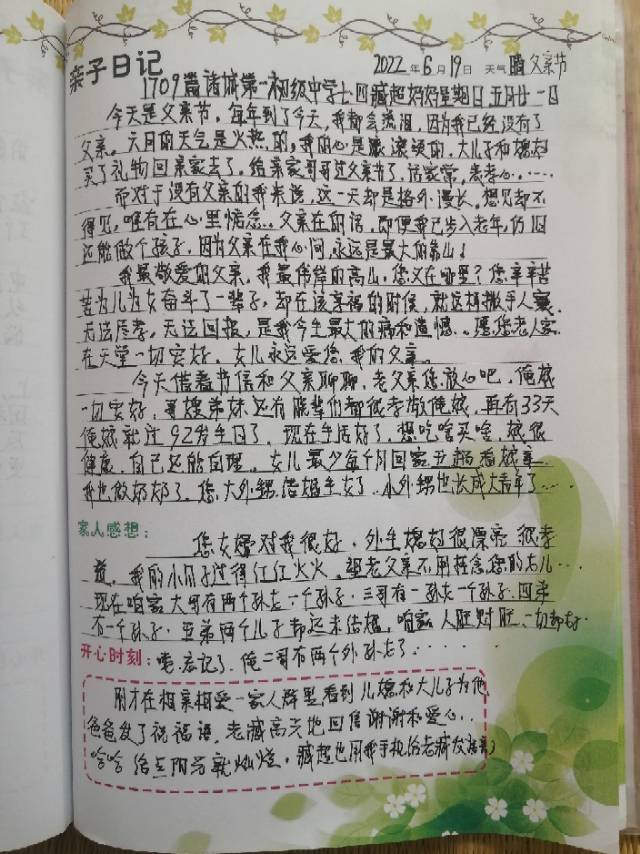 亲子日记 2022年6月19日 天气晴 父亲节
1709篇 诸城第一初级中学七四臧超妈妈星期日五月廿一日
今天是父亲节，每年到了今天，我都会流泪，因为我已经没有了
父亲。六月的天气是火热的，我的心是滚烫的，大儿子和媳妇
买了礼物回亲家去了。给亲家哥哥过父亲节了，话家常，表孝心……
而对于没有父亲的我来说，这一天却是格外漫长。想见却不
得见，唯有在心里惦念。父亲在的话，即便我已步入老年，仍旧
还能做个孩子，因为父亲在我心间，永远是最大的靠山！
我最敬爱的父亲，我最伟岸的高山，您又在哪里？您辛辛苦
苦为儿为女奋斗了一辈子，却在该享福的时候，就这样撒手人寰，
无法尽孝，无法回报，是我今生最大的痛和遗憾。愿您老人家
在天堂一切安好，女儿永远爱您，我的父亲。
今天借着节信和父亲聊聊，老父亲您放心吧，俺娘
一切安好，哥嫂弟妹还有晚辈们都很孝敬俺娘，再有33天
俺娘就过92岁生日了，现在生活好了，想吃啥买啥，娘很
健康，自己还能自理。女儿最少每个月回家五趟看娘亲
我也做奶奶了，您大外甥结婚生女了，小外甥也长成大青年了……
家人感想：
您女婿对我很好，外甥媳妇很漂亮很孝
道，我的小日子过得红红火火，望老父亲不用挂念您的女儿…
现在咱家大哥有两个孙女一个孙子，三哥有一孙女一个孙子，四弟
有一个孙子，五弟两个儿子都还未结婚，咱家人旺财旺，一切都好
开心时刻：噢，忘记了，俺二哥有两个外孙女了……
刚才在相亲相爱一家人群里，看到儿媳和大儿子为他
爸爸发了祝福语，老臧高兴地回信谢谢和爱心..
哈哈给点阳光就灿烂，臧超也用我手机给老臧发信息